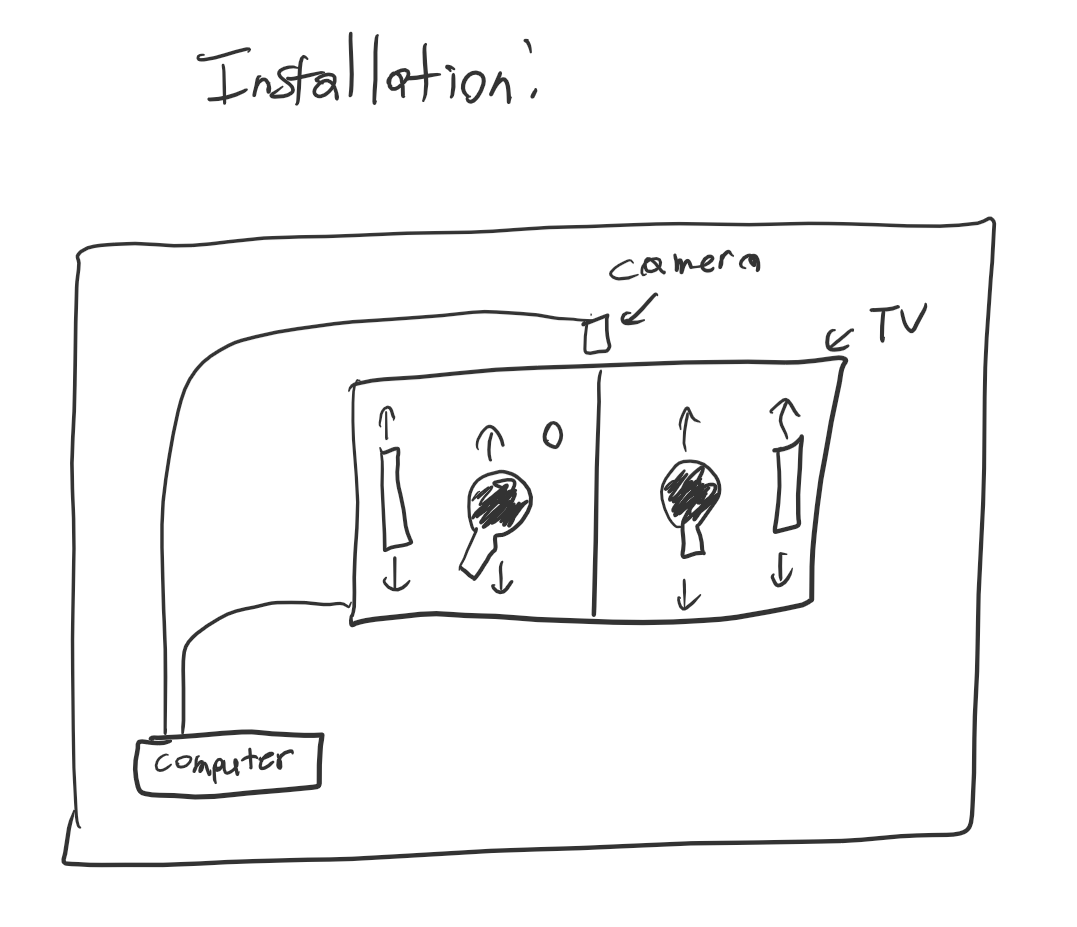 Installation:
camera
TV
computer